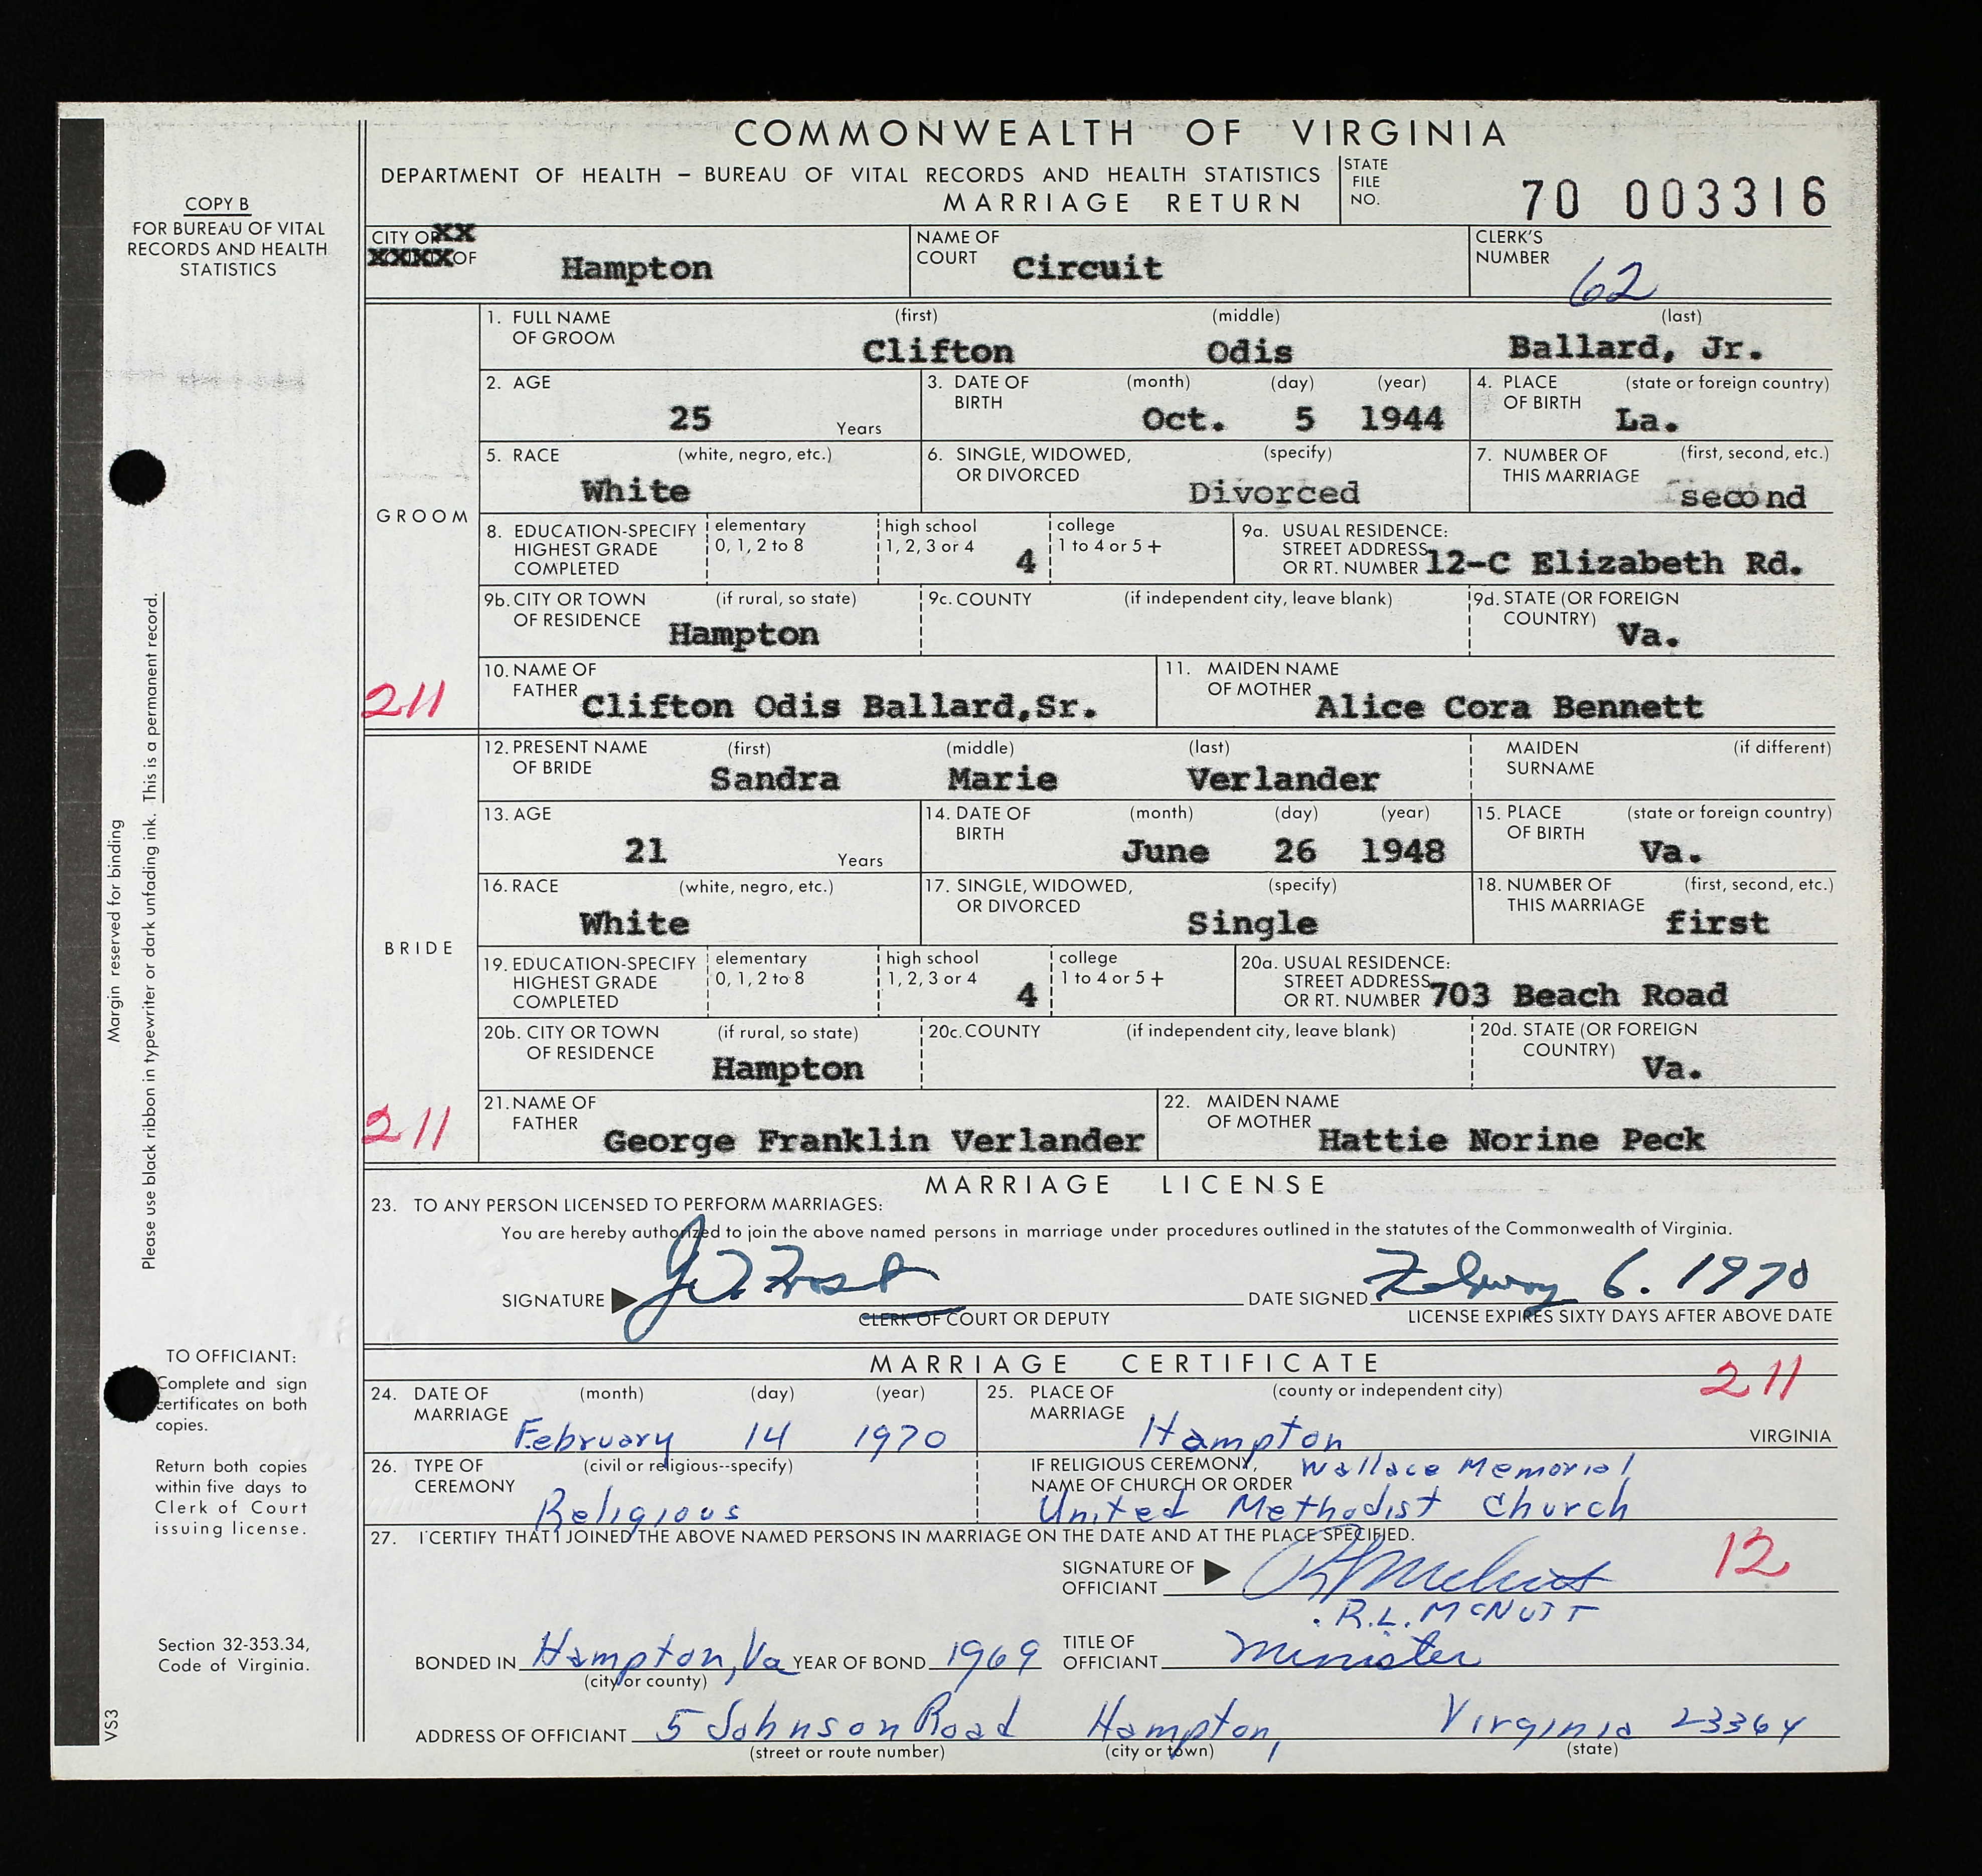 COMMONWEALTH OF VIRGINIA
DEPARTMENT OF HEALTH – BUREAU OF VITAL RECORDS AND HEALTH STATISTICS
MARRIAGE RETURN
STATE FILE NO. 70 003316
COPY B
FOR BUREAU OF VITAL
RECORDS AND HEALTH
STATISTICS
CITY OR XX
XXXX OF Hampton
NAME OF COURT Circuit
CLERK'S NUMBER 62
GROOM
1. FULL NAME OF GROOM (first) Clifton (middle) Odis (last) Ballard, Jr.
2. AGE 25 Years
3. DATE OF BIRTH (month) Oct. (day) 5 (year) 1944
4. PLACE OF BIRTH (state or foreign country) La.
5. RACE (white, negro, etc.) White
6. SINGLE, WIDOWED, OR DIVORCED (specify) Divorced
7. NUMBER OF THIS MARRIAGE (first, second, etc.) second
8. EDUCATION-SPECIFY HIGHEST GRADE COMPLETED
elementary 0, 1, 2 to 8
high school 1, 2, 3 or 4 4
college 1 to 4 or 5+
9a. USUAL RESIDENCE: STREET ADDRESS OR RT. NUMBER 12-C Elizabeth Rd.
9b. CITY OR TOWN OF RESIDENCE (if rural, so state) Hampton
9c. COUNTY (if independent city, leave blank)
9d. STATE (OR FOREIGN COUNTRY) Va.
211
10. NAME OF FATHER Clifton Odis Ballard,Sr.
11. MAIDEN NAME OF MOTHER Alice Cora Bennett
BRIDE
12. PRESENT NAME OF BRIDE (first) Sandra (middle) Marie (last) Verlander
MAIDEN SURNAME (if different)
13. AGE 21 Years
14. DATE OF BIRTH (month) June (day) 26 (year) 1948
15. PLACE OF BIRTH (state or foreign country) Va.
16. RACE (white, negro, etc.) White
17. SINGLE, WIDOWED, OR DIVORCED (specify) Single
18. NUMBER OF THIS MARRIAGE (first, second, etc.) first
19. EDUCATION-SPECIFY HIGHEST GRADE COMPLETED
elementary 0, 1, 2 to 8
high school 1, 2, 3 or 4 4
college 1 to 4 or 5+
20a. USUAL RESIDENCE: STREET ADDRESS OR RT. NUMBER 703 Beach Road
20b. CITY OR TOWN OF RESIDENCE (if rural, so state) Hampton
20c. COUNTY (if independent city, leave blank)
20d. STATE (OR FOREIGN COUNTRY) Va.
211
21. NAME OF FATHER George Franklin Verlander
22. MAIDEN NAME OF MOTHER Hattie Norine Peck
MARRIAGE LICENSE
23. TO ANY PERSON LICENSED TO PERFORM MARRIAGES:
You are hereby authorized to join the above named persons in marriage under procedures outlined in the statutes of the Commonwealth of Virginia.
SIGNATURE Frost
CLERK OF COURT OR DEPUTY
DATE SIGNED February 6. 1970
LICENSE EXPIRES SIXTY DAYS AFTER ABOVE DATE
MARRIAGE CERTIFICATE
211
24. DATE OF MARRIAGE (month) February (day) 14 (year) 1970
25. PLACE OF MARRIAGE (county or independent city) Hampton VIRGINIA
26. TYPE OF CEREMONY (civil or religious--specify) Religious
IF RELIGIOUS CEREMONY, NAME OF CHURCH OR ORDER Wallace Memorial
United Methodist Church
27. I CERTIFY THAT I JOINED THE ABOVE NAMED PERSONS IN MARRIAGE ON THE DATE AND AT THE PLACE SPECIFIED.
12
SIGNATURE OF OFFICIANT
R.L. McNUTT
BONDED IN Hampton, Va (city or county)
YEAR OF BOND 1969
TITLE OF OFFICIANT Minister
ADDRESS OF OFFICIANT 5 Johnson Road Hampton, Virginia 23364
(street or route number) (city or town) (state)
Margin reserved for binding
Please use black ribbon in typewriter or dark unfading ink. This is a permanent record.
TO OFFICIANT:
Complete and sign
certificates on both
copies.
Return both copies
within five days to
Clerk of Court
issuing license.
Section 32-353.34,
Code of Virginia.
VS3